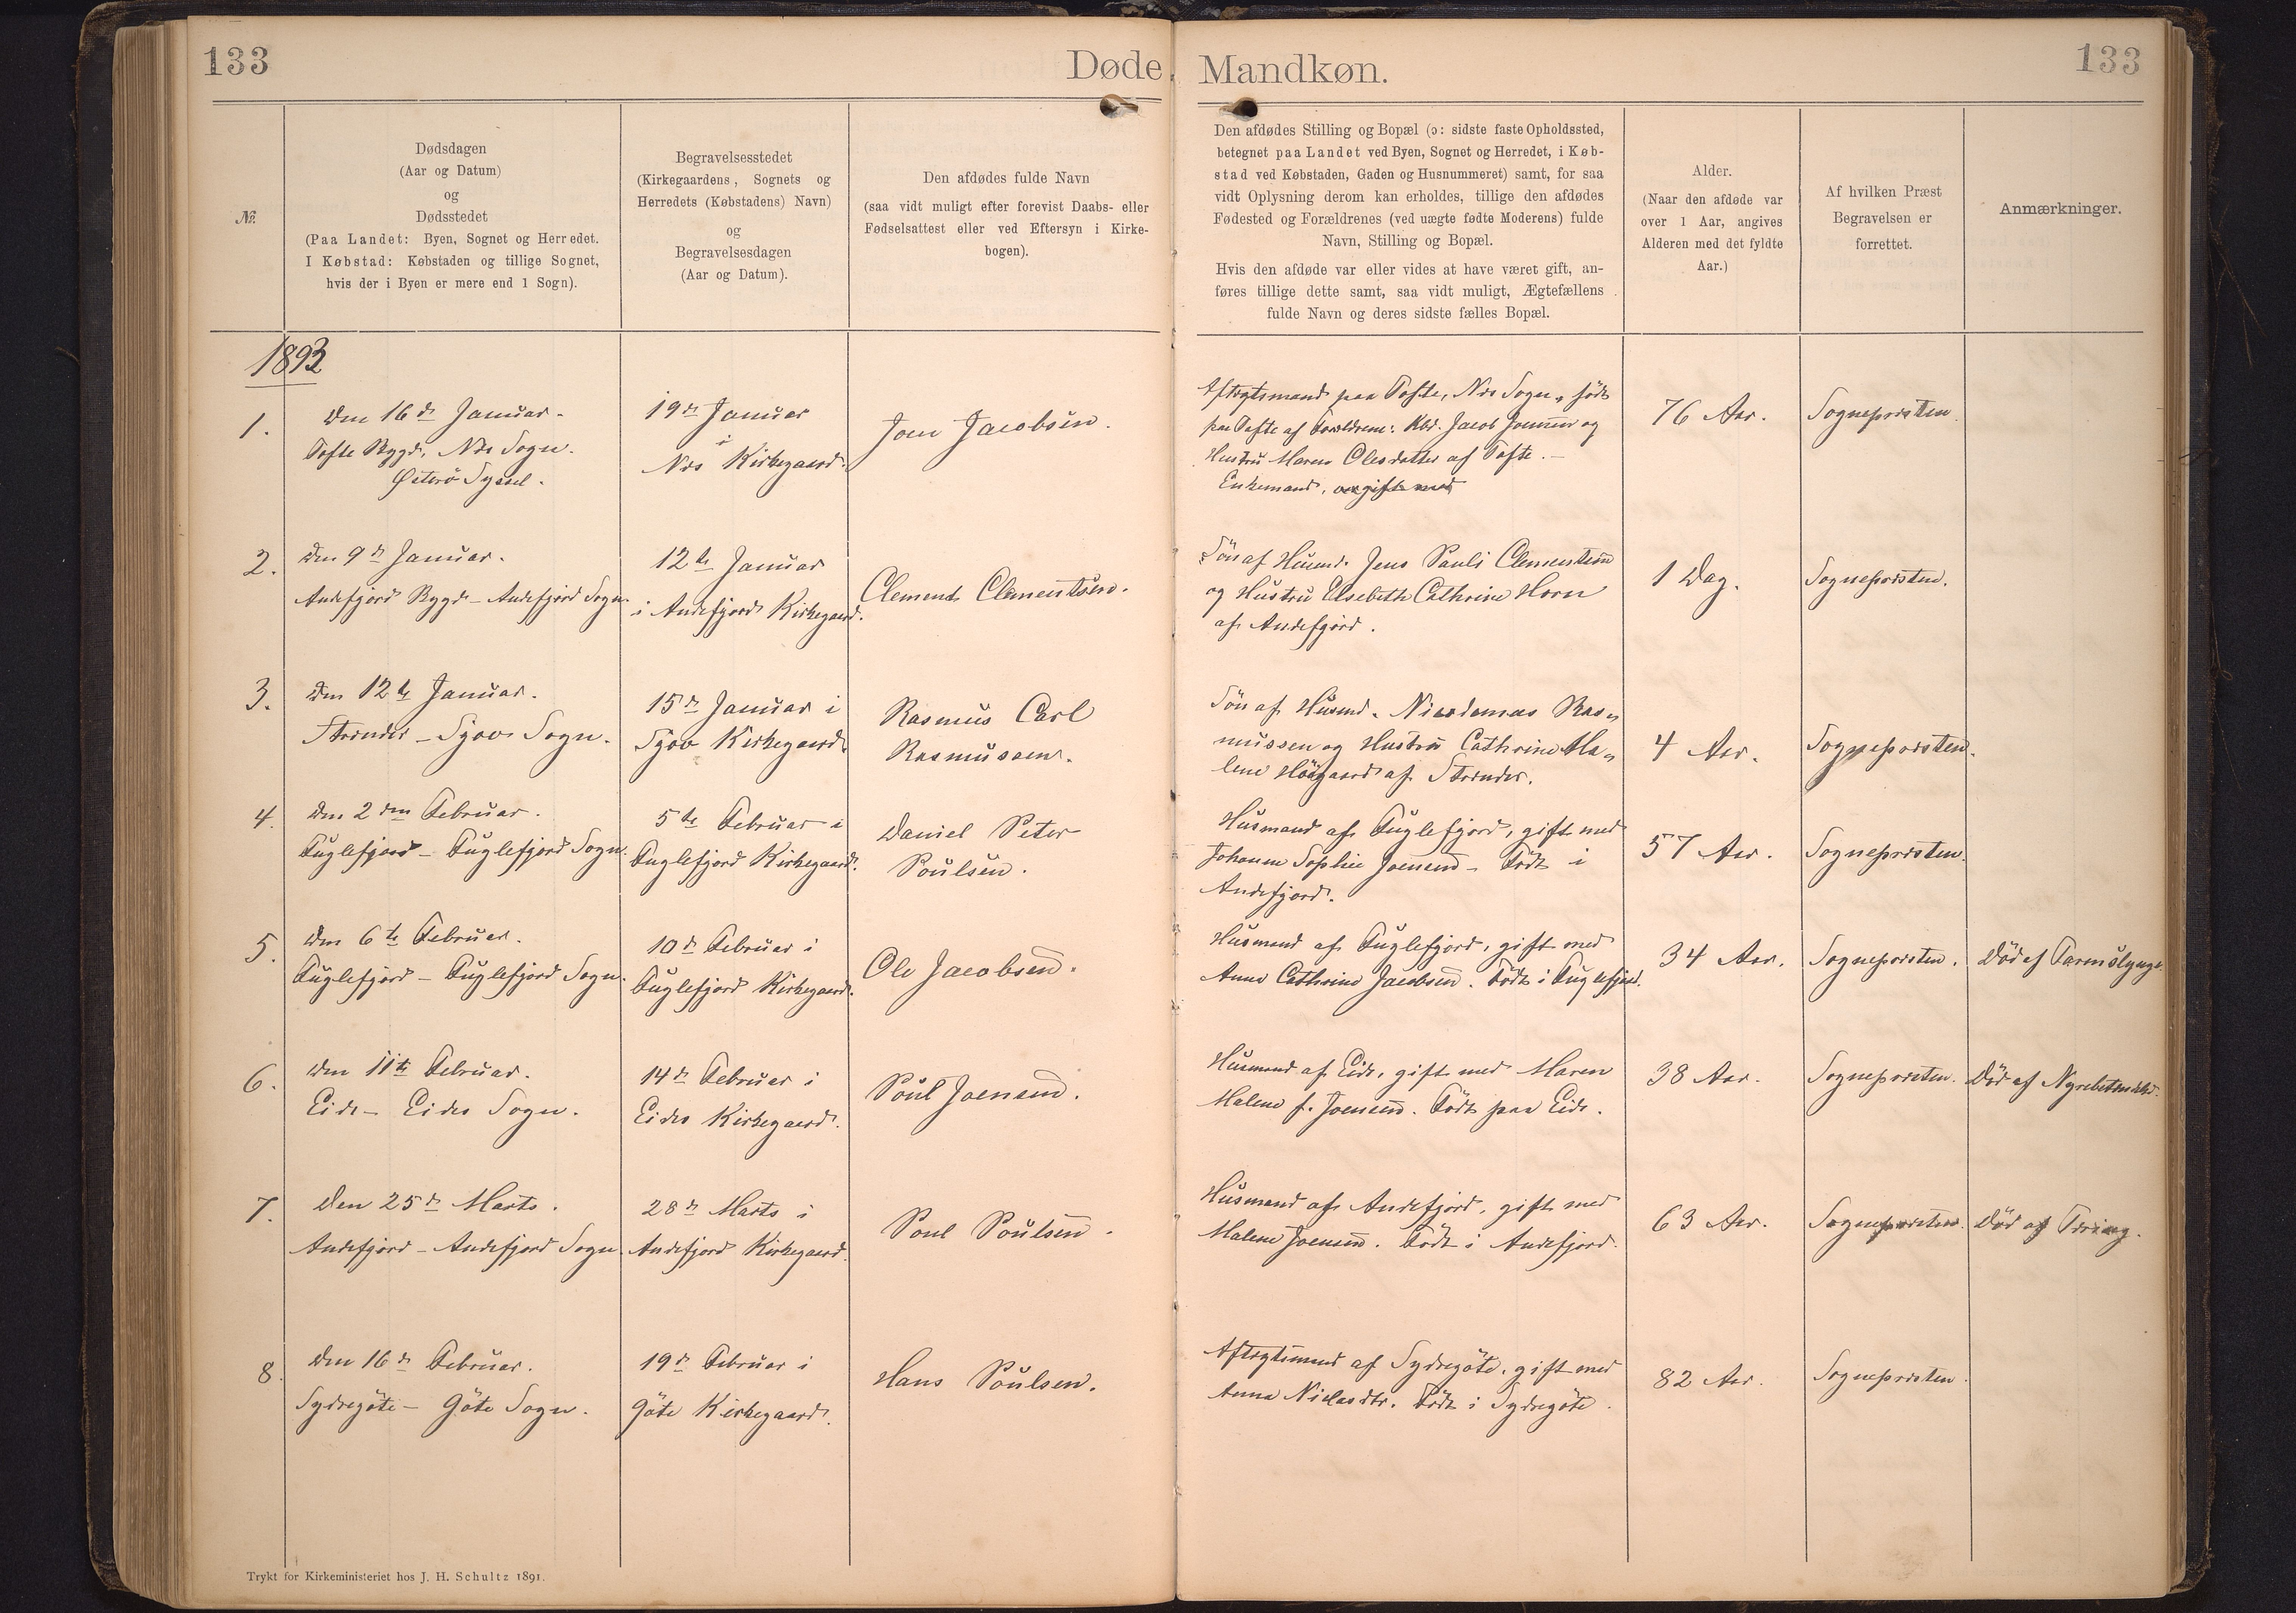 133
Døde. Mandkøn.
133
№.
Dødsdagen
(Aar og Datum)
og
Dødsstedet
(Paa Landet: Byen, Sognet og Herredet.
I Købstad: Købstaden og tillige Sognet,
hvis der i Byen er mere end 1 Sogn).
Begravelsesstedet
(Kirkegaardens, Sognets og
Herredets (Købstadens) Navn)
og
Begravelsesdagen
(Aar og Datum).
Den afdødes fulde Navn
(saa vidt muligt efter forevist Daabs- eller
Fødselsattest eller ved Eftersyn i Kirke-
bogen).
Den afdødes Stilling og Bopæl (ɔ: sidste faste Opholdssted,
betegnet paa Landet ved Byen, Sognet og Herredet, i Køb-
stad ved Købstaden, Gaden og Husnummeret) samt, for saa
vidt Oplysning derom kan erholdes, tillige den afdødes
Fødested og Forældrenes (ved uægte fødte Moderens) fulde
Navn, Stilling og Bopæl.
Hvis den afdøde var eller vides at have været gift, an-
føres tillige dette samt, saa vidt muligt, Ægtefællens
fulde Navn og deres sidste fælles Bopæl.
Alder.
(Naar den afdøde var
over 1 Aar, angives
Alderen med det fyldte
Aar.)
Af hvilken Præst
Begravelsen er
forrettet.
Anmærkninger.
1893
1.
Den 16de Januar.
Tofte Bygd, Nes Sogn.
Østerø Syssel.
19de Januar
i
Nes Kirkegaard.
Joen Jacobsen.
Aftægtsmand paa Tofte, Nes Sogn, født
paa Tofte af Forældrene: Kbd. Jacob Joensen og
Hustru Maren Olesdatter af Tofte. –
Enkemand, gift med
76 Aar.
Sognepræsten.
2.
Den 9de Januar.
Andefjord Bygd – Andefjord Sogn.
12te Januar
i Andefjord Kirkegaard.
Clement Clementsen.
Søn af Husmd. Jens Pauli Clementsen
og Hustru Elsebeth Cathrine Horn
af Andefjord.
1 Dag.
Sognepræsten.
3.
Den 12te Januar.
Strender – Sjov Sogn.
15de Januar i
Sjov Kirkegaard.
Rasmus Carl
Rasmussen.
Søn af Husmd. Nicodemus Ras-
mussen og Hustru Cathrine Ma-
lene Højgaard af Strender.
4 Aar.
Sognepræsten.
4.
Den 2den Februar.
Fuglefjord – Fuglefjord Sogn.
5te Februar i
Fuglefjord Kirkegaard.
Daniel Peter
Poulsen.
Husmand af Fuglefjord, gift med
Johanne Sophie Joensen – Født i
Andefjord.
57 Aar.
Sognepræsten.
5.
Den 6te Februar.
Fuglefjord – Fuglefjord Sogn.
10de Februar i
Fuglefjord Kirkegaard.
Ole Jacobsen.
Husmand af Fuglefjord, gift med
Anne Cathrine Jacobsen. Født i Fuglefjord.
34 Aar.
Sognepræsten.
Død af
6.
Den 11te Februar.
Eide – Eides Sogn.
14de Februar i
Eides Kirkegaard.
Poul Joensen.
Husmand af Eide, gift med Maren
Malene f. Joensen. Født paa Eide.
38 Aar.
Sognepræsten.
Død af Nyrebetændelse.
7.
Den 25de Marts.
Andefjord – Andefjord Sogn.
28de Marts i
Andefjord Kirkegaard.
Poul Poulsen.
Husmand af Andefjord, gift med
Malene Joensen. Født i Andefjord.
63 Aar.
Sognepræsten.
Død af Tæring.
8.
Den 16de Februar.
Sydregøte – Gøte Sogn.
19de Februar i
Gøte Kirkegaard.
Hans Poulsen.
Aftægtsmand af Sydregøte, gift med
Anna Niclasdtr. Født i Sydregøte.
82 Aar.
Sognepræsten.
Trykt for Kirkeministeriet hos J. H. Schultz 1891.